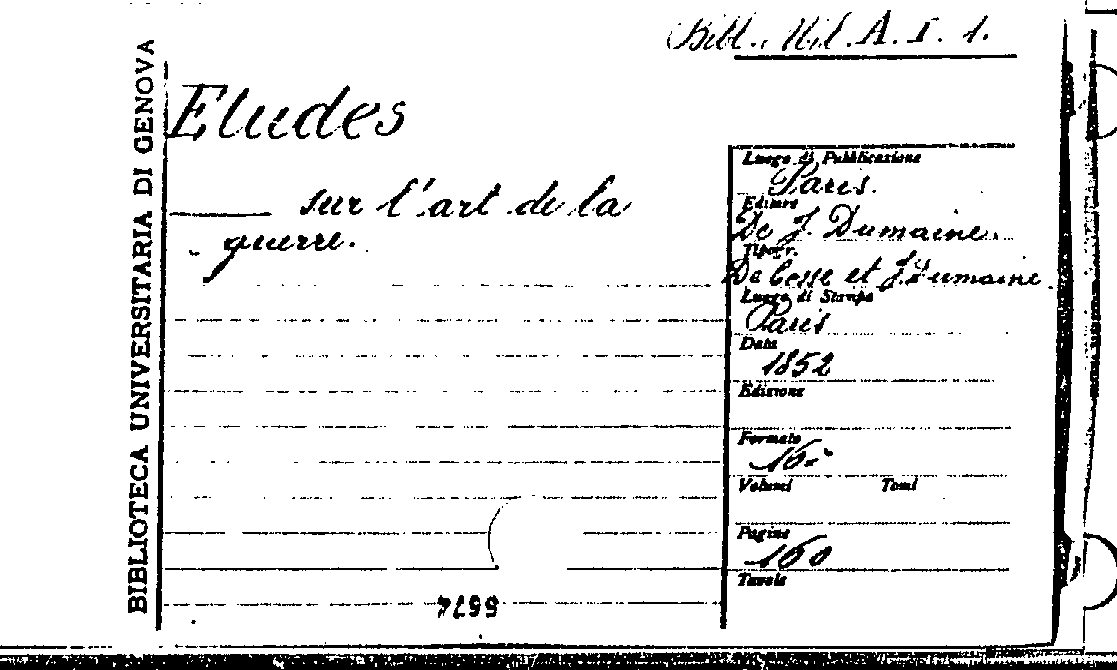 Bibl. Mil. A. I. 1.
BIBLIOTECA UNIVERSITARIA DI GENOVA
Etudes
sur l'art de la
guerre.
Luogo di Pubblicazione
Paris.
Editore
De J. Dumaine.
Tipogr.
De Cosse et J. Dumaine.
Luogo di Stampa
Paris
Data
1852
Edizione
Formato
16°
Volumi Tomi
Pagine
160
Tavole